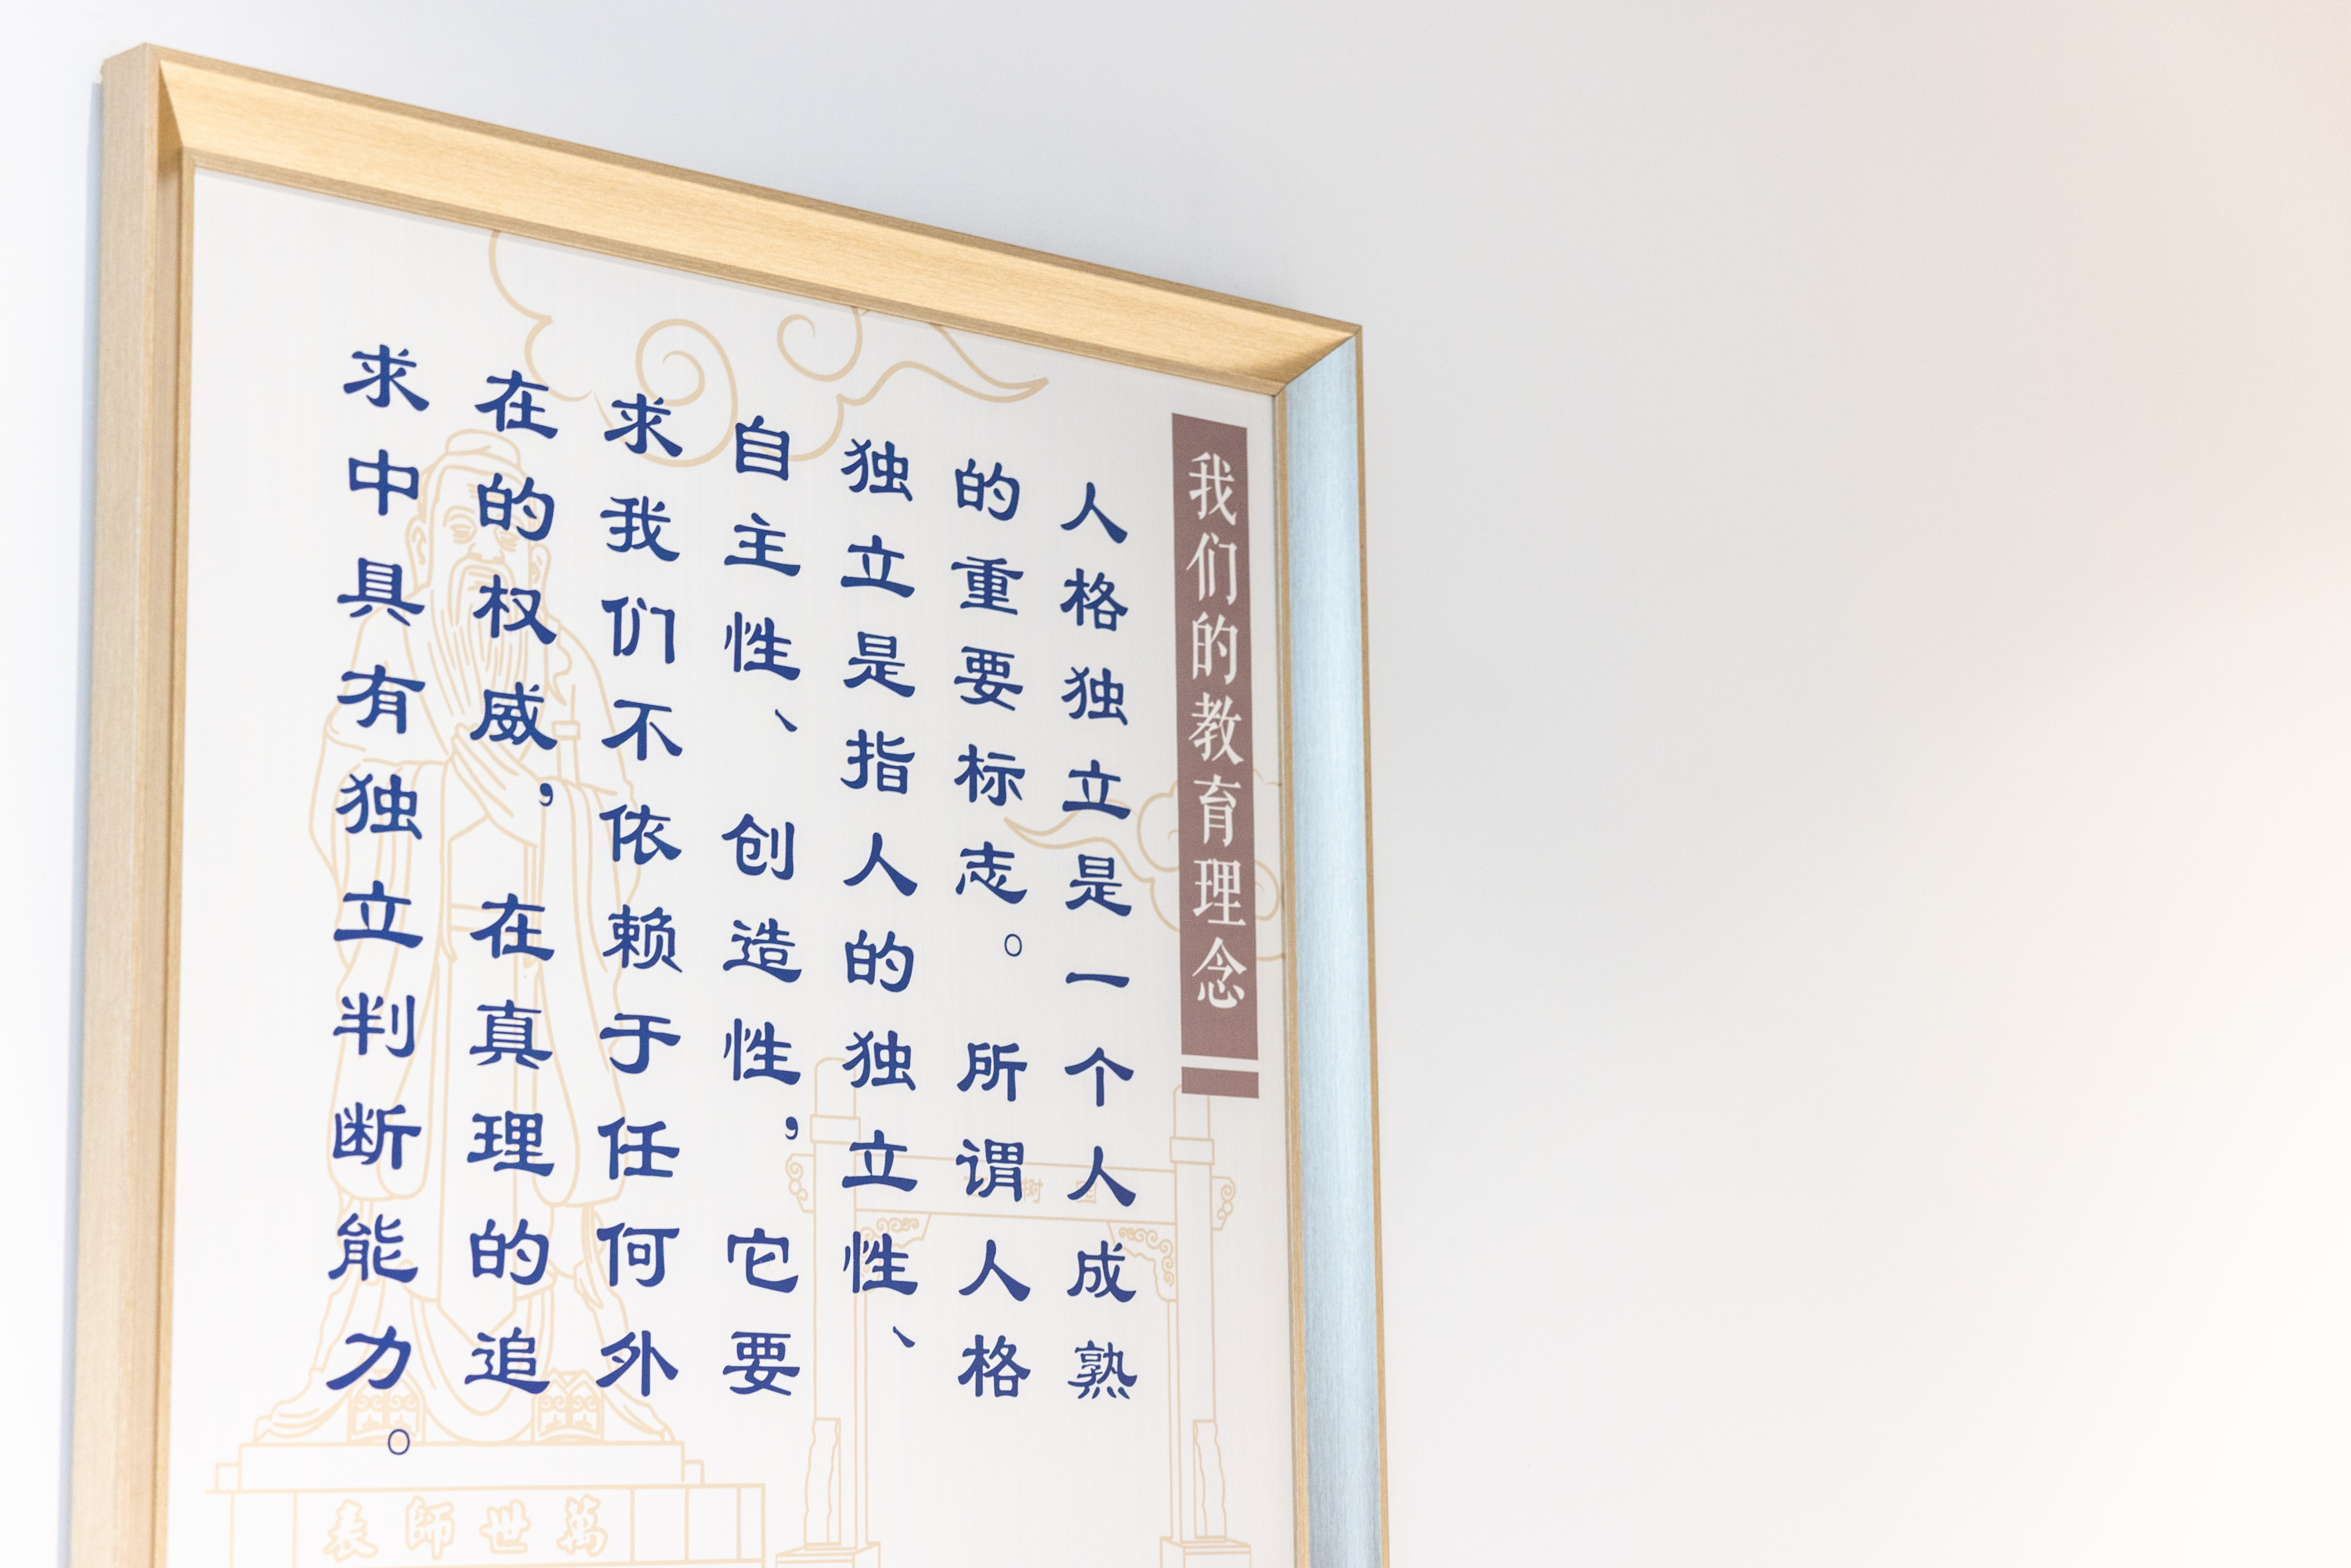 我们的教育理念
人格独立是一个人成熟
的重要标志。所谓人格
独立是指人的独立性、
自主性、创造性，它要
求我们不依赖于任何外
在的权威，在真理的追
求中具有独立判断能力。
萬世師表